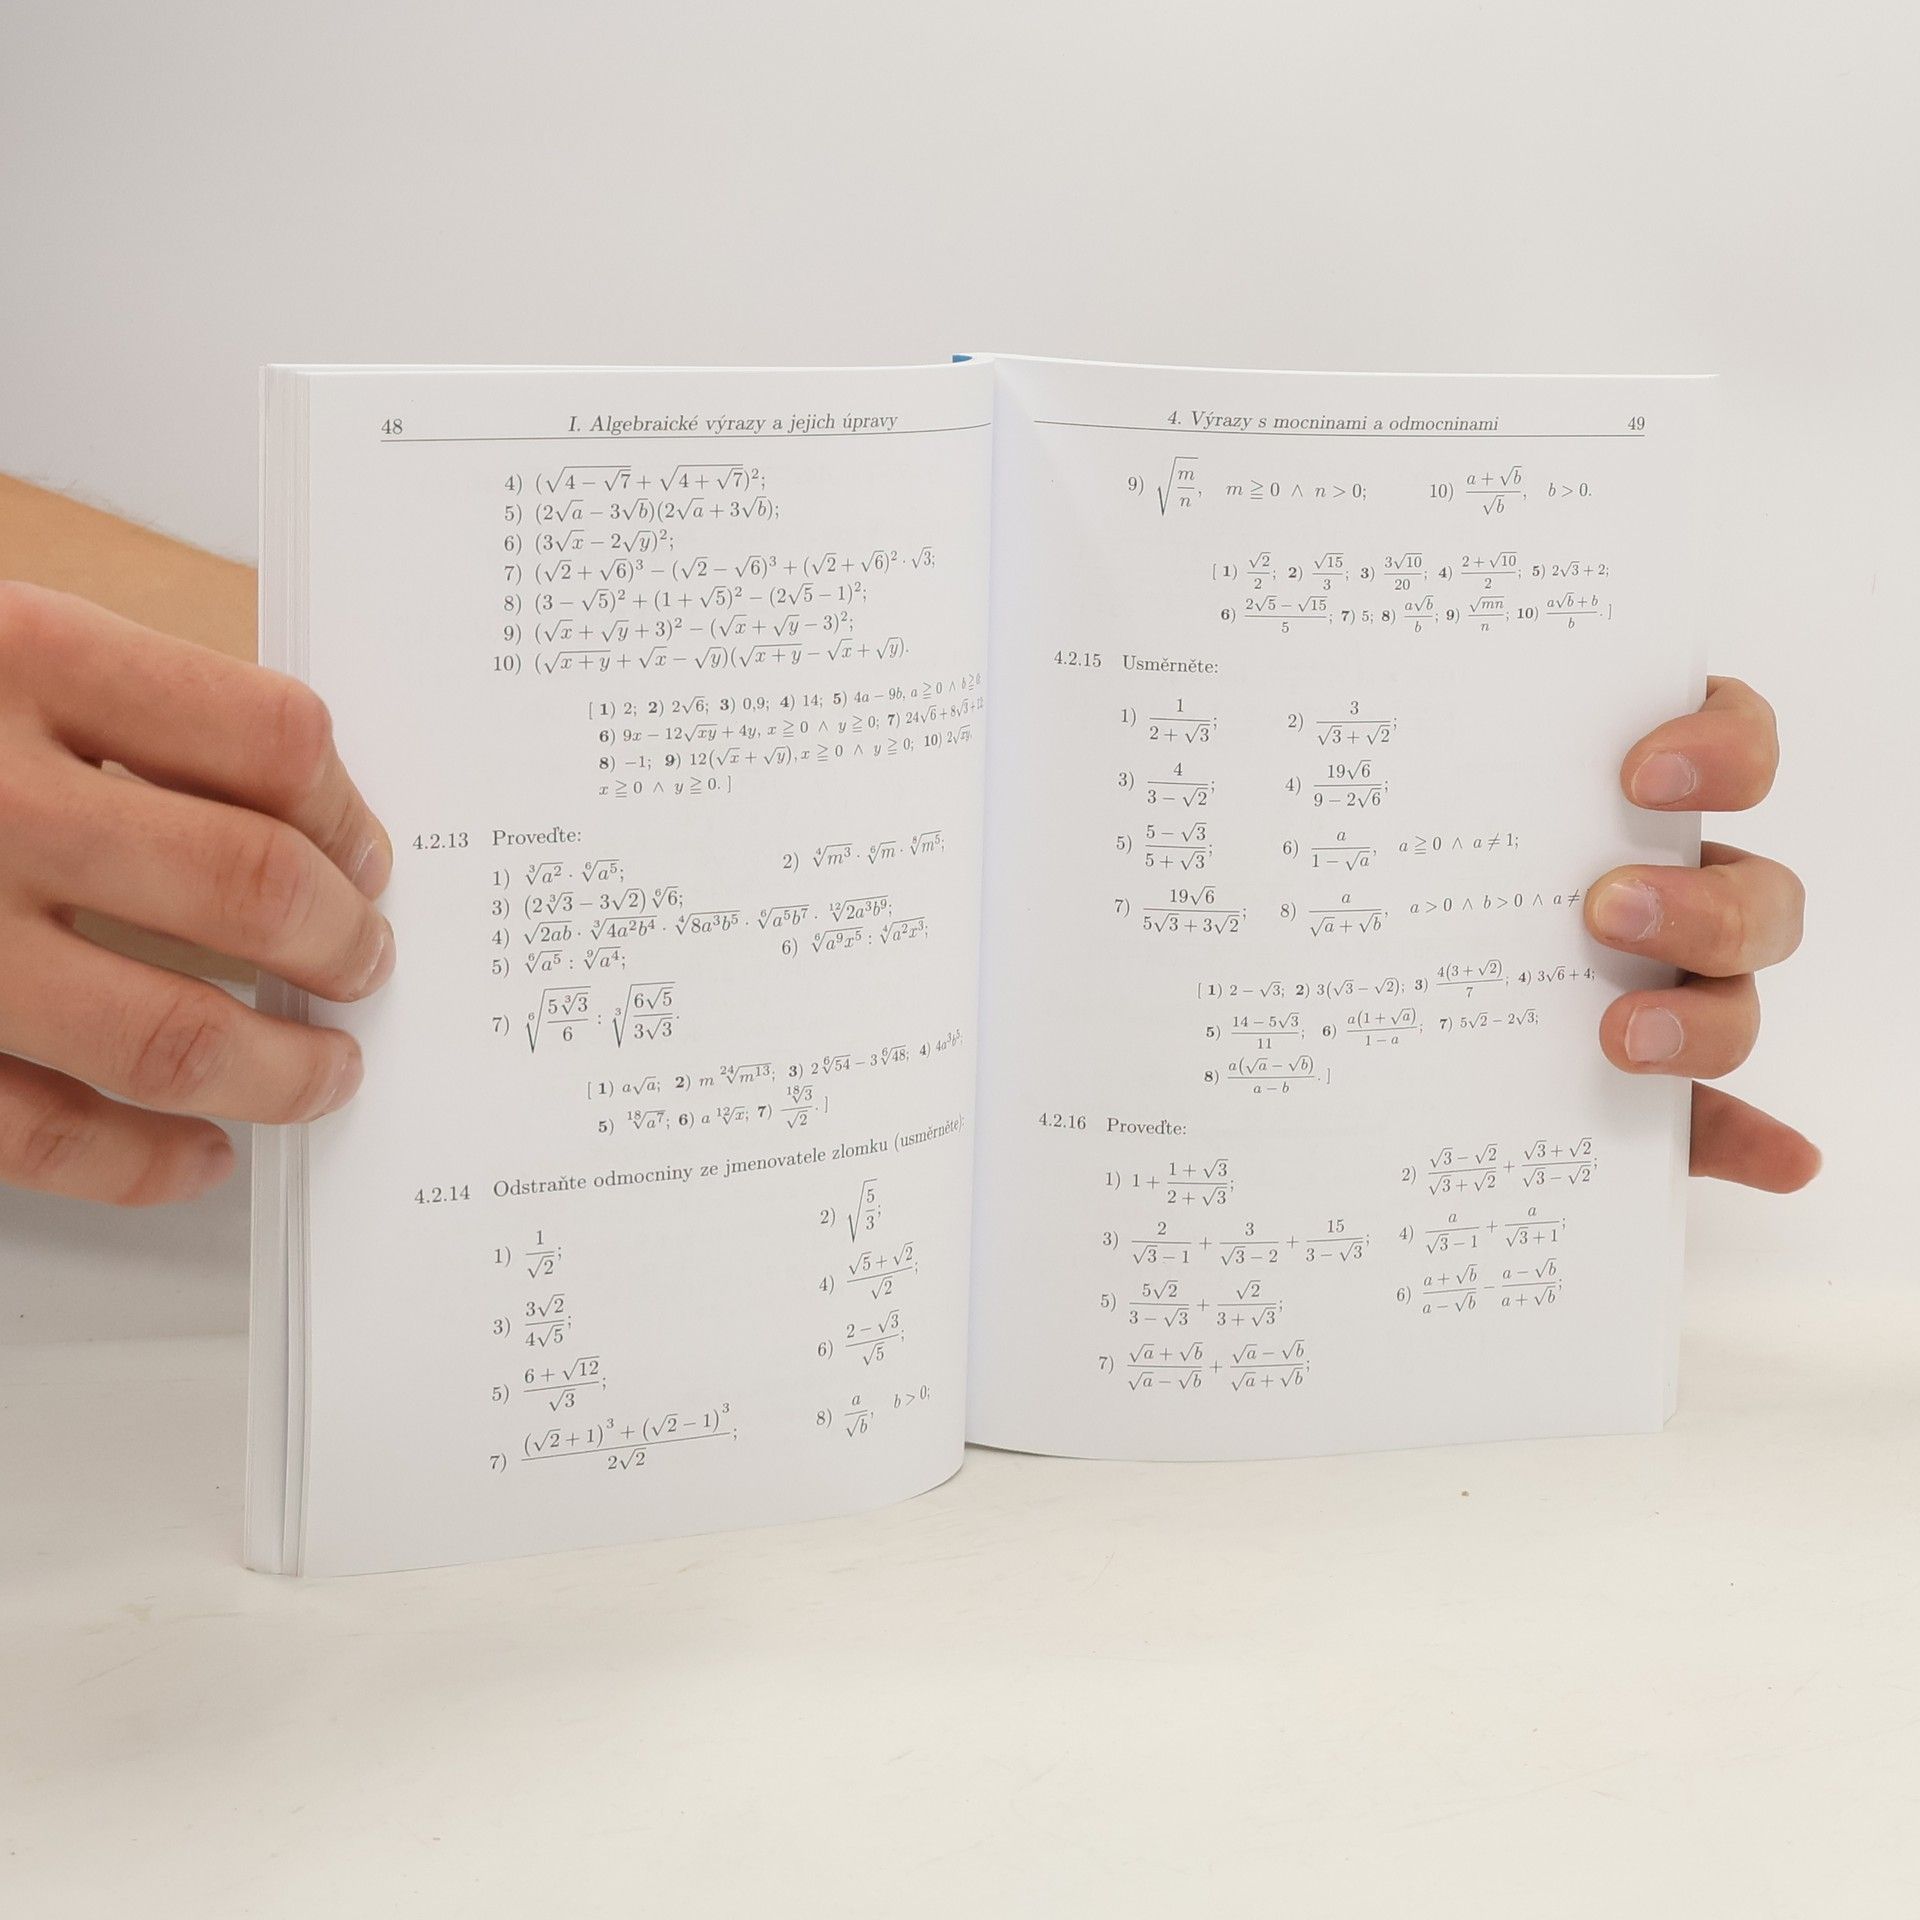 48 I. Algebraické výrazy a jejich úpravy
4) (√(4 − √7) + √(4 + √7))²;
5) (2√a − 3√b)(2√a + 3√b);
6) (3√x − 2√y)²;
7) (√2 + √6)³ − (√2 − √6)³ + (√2 + √6)² · √3;
8) (3 − √5)² + (1 + √5)² − (2√5 − 1)²;
9) (√x + √y + 3)² − (√x + √y − 3)²;
10) (√(x + y) + √x − √y)(√(x + y) − √x + √y).
[ 1) 2; 2) 2√6; 3) 0,9; 4) 14; 5) 4a − 9b, a ≧ 0 ∧ b ≧ 0;
6) 9x − 12√(xy) + 4y, x ≧ 0 ∧ y ≧ 0; 7) 24√6 + 8√3 + 12
8) −1; 9) 12(√x + √y), x ≧ 0 ∧ y ≧ 0; 10) 2√(xy),
x ≧ 0 ∧ y ≧ 0. ]
4.2.13 Proveďte:
1) ∛(a²) · ⁶√(a⁵); 2) ⁴√(m³) · ⁶√m · ⁸√(m⁵);
3) (2∛3 − 3√2) ⁶√6;
4) √(2ab) · ∛(4a²b⁴) · ⁴√(8a³b⁵) · ⁶√(a⁵b⁷) · ¹²√(2a³b⁹);
5) ⁶√(a⁵) : ⁹√(a⁴); 6) ⁶√(a⁹x⁵) : ⁴√(a²x³);
7) ⁶√(5∛3 / 6) : ∛(6√5 / 3√3).
[ 1) a√a; 2) m ²⁴√(m¹³); 3) 2 ⁶√54 − 3 ⁶√48; 4) 4a³b⁵;
5) ¹⁸√(a⁷); 6) a ¹²√x; 7) ¹⁸√3 / √2. ]
4.2.14 Odstraňte odmocniny ze jmenovatele zlomku (usměrněte):
1) 1/√2; 2) √(5/3);
3) 3√2 / 4√5; 4) (√5 + √2)/√2;
5) (6 + √12)/√3; 6) (2 − √3)/√5;
7) ((√2 + 1)³ + (√2 − 1)³) / 2√2; 8) a/√b, b > 0;
4. Výrazy s mocninami a odmocninami 49
9) √(m/n), m ≧ 0 ∧ n > 0; 10) (a + √b)/√b, b > 0.
[ 1) √2/2; 2) √15/3; 3) 3√10/20; 4) (2 + √10)/2; 5) 2√3 + 2;
6) (2√5 − √15)/5; 7) 5; 8) a√b/b; 9) √(mn)/n; 10) (a√b + b)/b. ]
4.2.15 Usměrněte:
1) 1/(2 + √3); 2) 3/(√3 + √2);
3) 4/(3 − √2); 4) 19√6/(9 − 2√6);
5) (5 − √3)/(5 + √3); 6) a/(1 − √a), a ≧ 0 ∧ a ≠ 1;
7) 19√6/(5√3 + 3√2); 8) a/(√a + √b), a > 0 ∧ b > 0 ∧ a ≠
[ 1) 2 − √3; 2) 3(√3 − √2); 3) 4(3 + √2)/7; 4) 3√6 + 4;
5) (14 − 5√3)/11; 6) a(1 + √a)/(1 − a); 7) 5√2 − 2√3;
8) a(√a − √b)/(a − b). ]
4.2.16 Proveďte:
1) 1 + (1 + √3)/(2 + √3); 2) (√3 − √2)/(√3 + √2) + (√3 + √2)/(√3 − √2);
3) 2/(√3 − 1) + 3/(√3 − 2) + 15/(3 − √3); 4) a/(√3 − 1) + a/(√3 + 1);
5) 5√2/(3 − √3) + √2/(3 + √3); 6) (a + √b)/(a − √b) − (a − √b)/(a + √b);
7) (√a + √b)/(√a − √b) + (√a − √b)/(√a + √b);